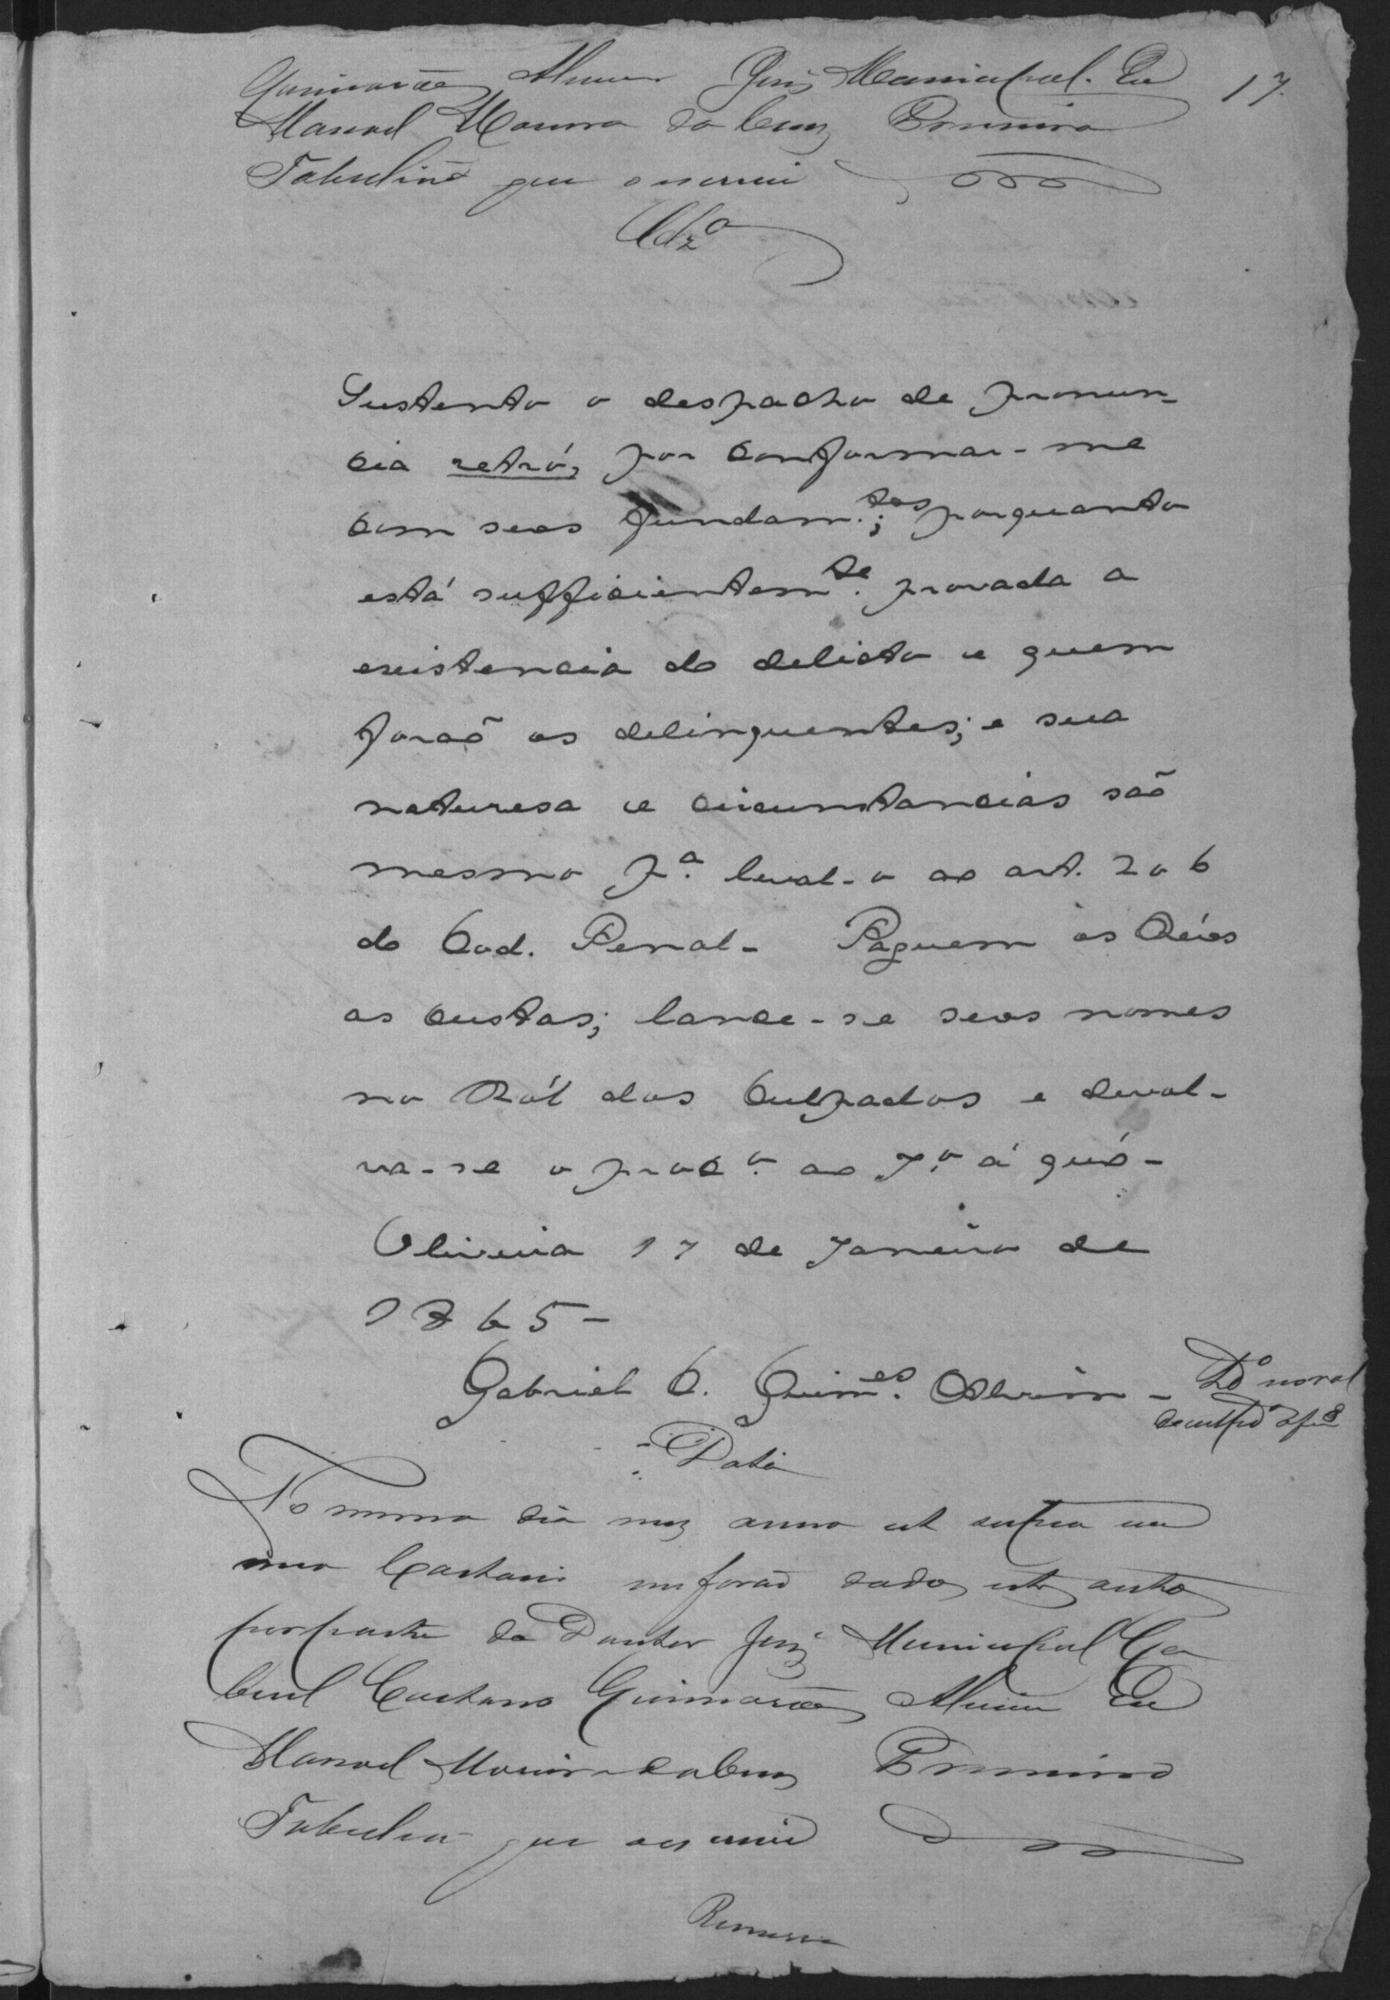 Guimarães Alvim Juiz Municipal. Eu
17.
Manoel Moreira da Cruz Primeiro
Tabelião que o escrevi
Clz.º
Sustento o despacho de pronun-
cia retró, por conformar-me
com seos fundam.tos; porquanto
está sufficientem.te provada a
existencia do delicto e quem
forão os delinquentes; e sua
naturesa e circunstancias são
mesmo p.ª leval-o ao art. 206
do Cod. Penal- Páguem os Réos
as custas; lance-se seos nomes
no Ról dos Culpados e devol-
va-se o proc.º ao J.º á quó-
Oliveira 17 de Janeiro de
1865-
Gabriel C. Guim.es Alvim-
Data
No mesmo dia mez anno ut supra em
meo Cartorio me forão dados estes autos
por parte do Doutor Juiz Municipal Ga
briel Caetano Guimarães Alvim Eu
Manoel Moreira da Cruz Primeiro
Tabelião que o escrevi
Remessa